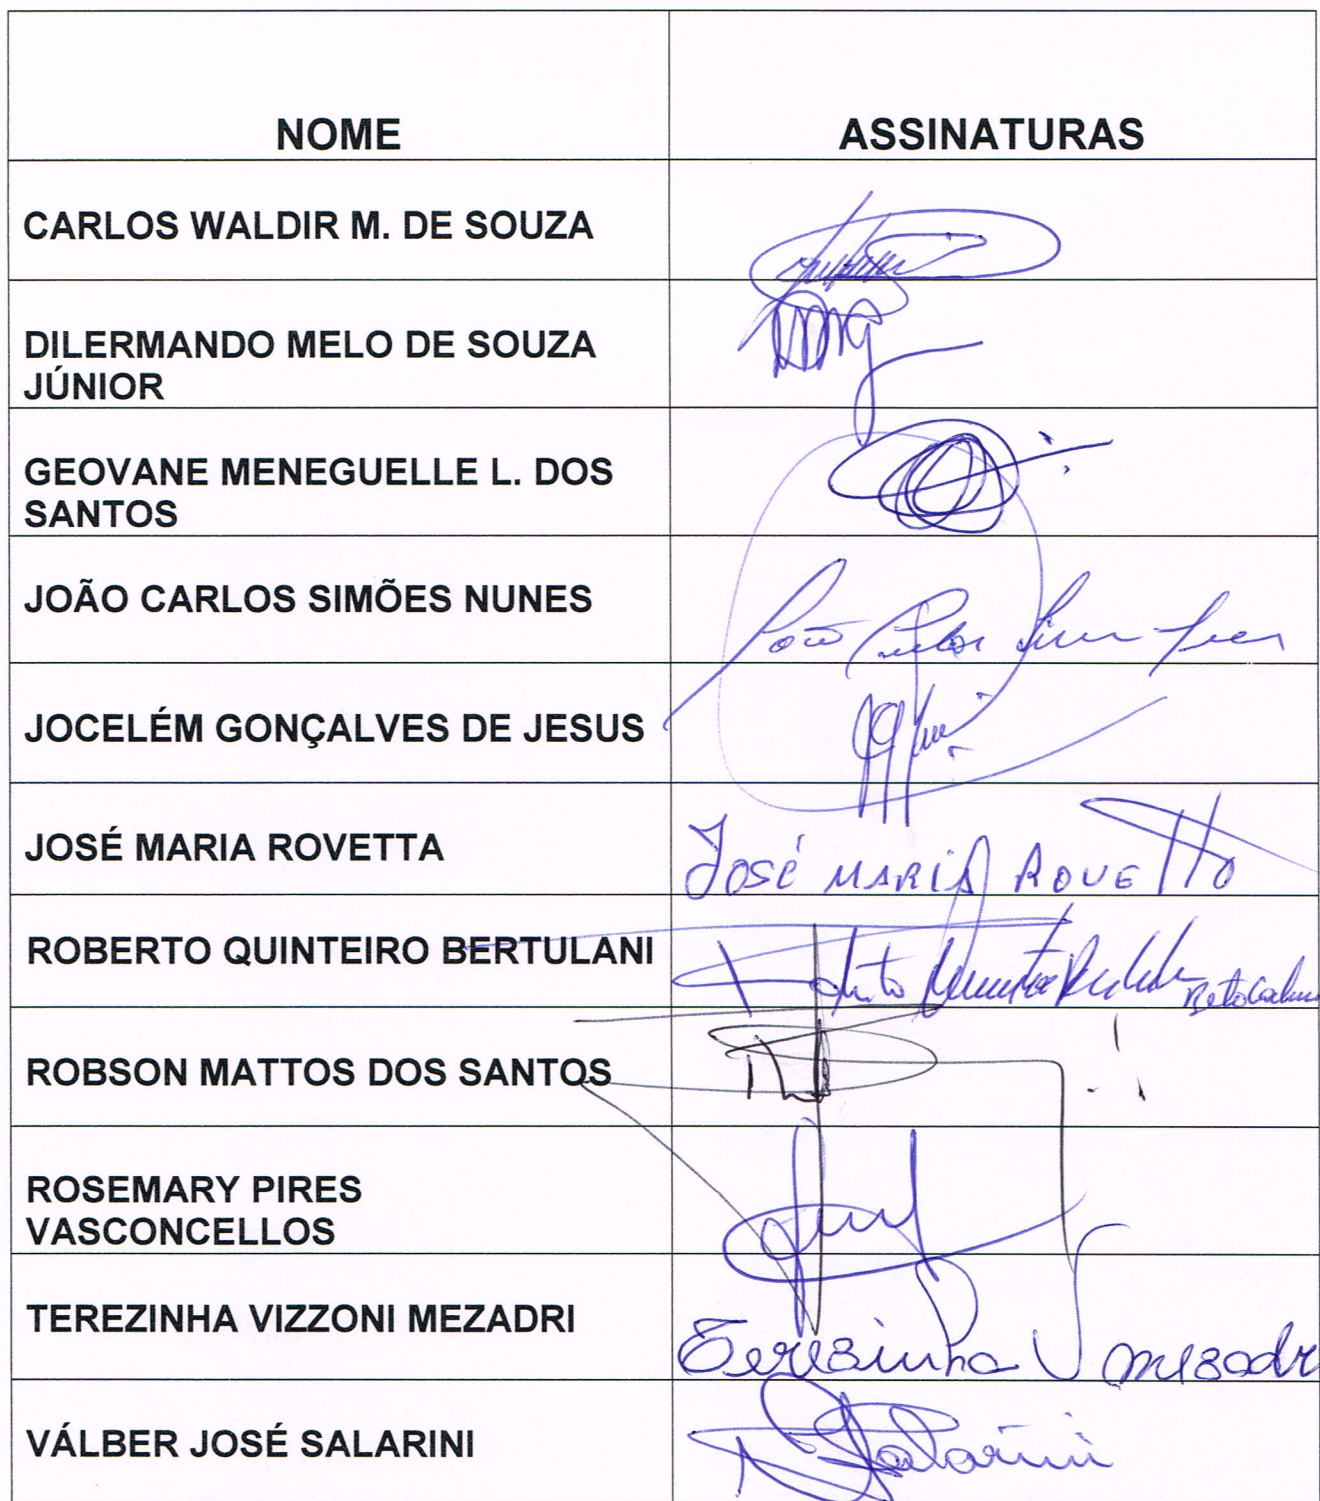 NOME
ASSINATURAS
CARLOS WALDIR M. DE SOUZA
DILERMANDO MELO DE SOUZA
JÚNIOR
GEOVANE MENEGUELLE L. DOS
SANTOS
JOÃO CARLOS SIMÕES NUNES
João Carlos
JOCELÉM GONÇALVES DE JESUS
JOSÉ MARIA ROVETTA
JOSÉ MARIA ROVETTA
ROBERTO QUINTEIRO BERTULANI
ROBSON MATTOS DOS SANTOS
ROSEMARY PIRES
VASCONCELLOS
TEREZINHA VIZZONI MEZADRI
Terezinha V Mezadri
VÁLBER JOSÉ SALARINI
Salarini